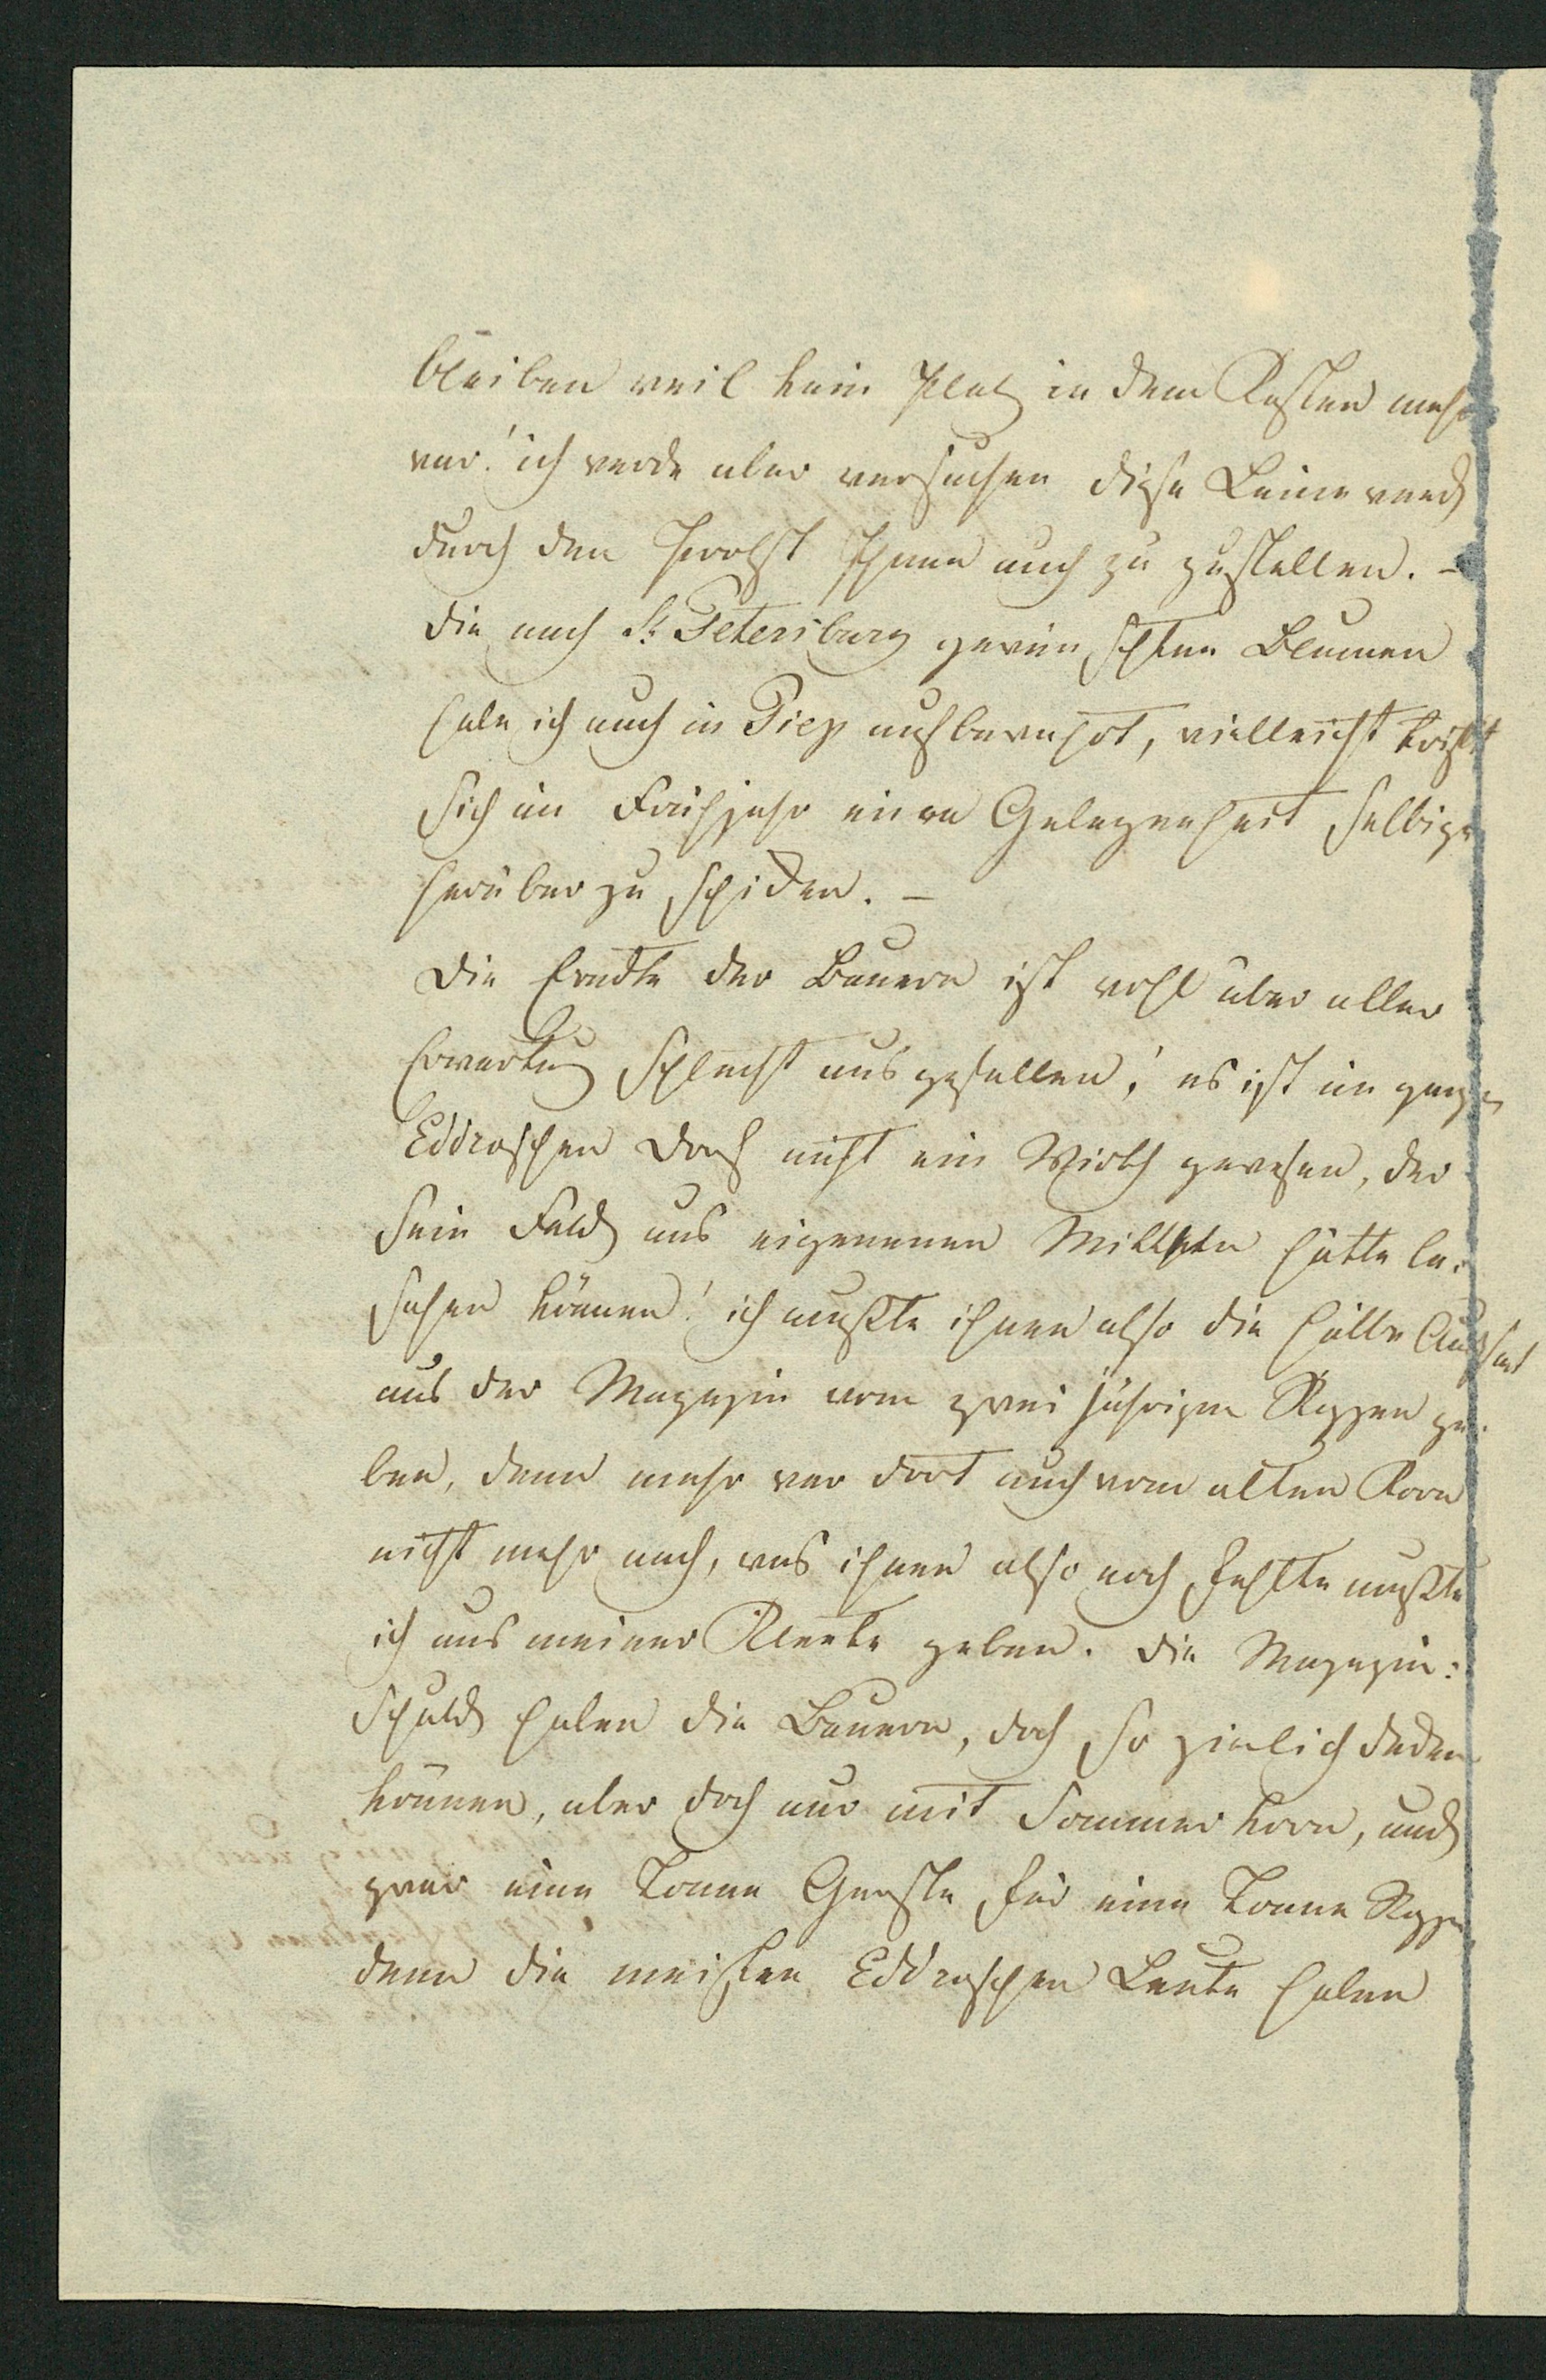 bleiben weil kein Platz in dem Kasten mehr
war! ich werde aber versuchen diese Leinwand
durch den Probst Ihnen auch zu zustellen. –
die nach St. Petersburg gewünschten Blumen
habe ich auch in Piep aufbewahrt, vielleicht trifft
sich im Frühjahr eine Gelegenheit selbige
herüber zu schicken. –
Die Erndte der Bauern ist wohl über aller
Erwartung schlecht ausgefallen! es ist im ganzen
Eddraschen doch nicht ein Wirth gewesen, der
sein Feld aus eigenenen Mitteln hätte be-
sähen können! ich mußte ihnen also die halbe Aussaat
aus der Magazin vom zwei jährigen Roggen ge-
ben, denn mehr war dort auch vom alten Korn
nicht mehr nach, was ihnen also noch fehlte mußte
ich aus meiner Kleete geben. Die Magazin:
Schuld haben die Bauern, doch so zimlich decken
können, aber doch nur mit Sommer korn, und
zwar eine Tonne Gerste für eine Tonne Roggen
denn die meisten Eddraschen Leute haben